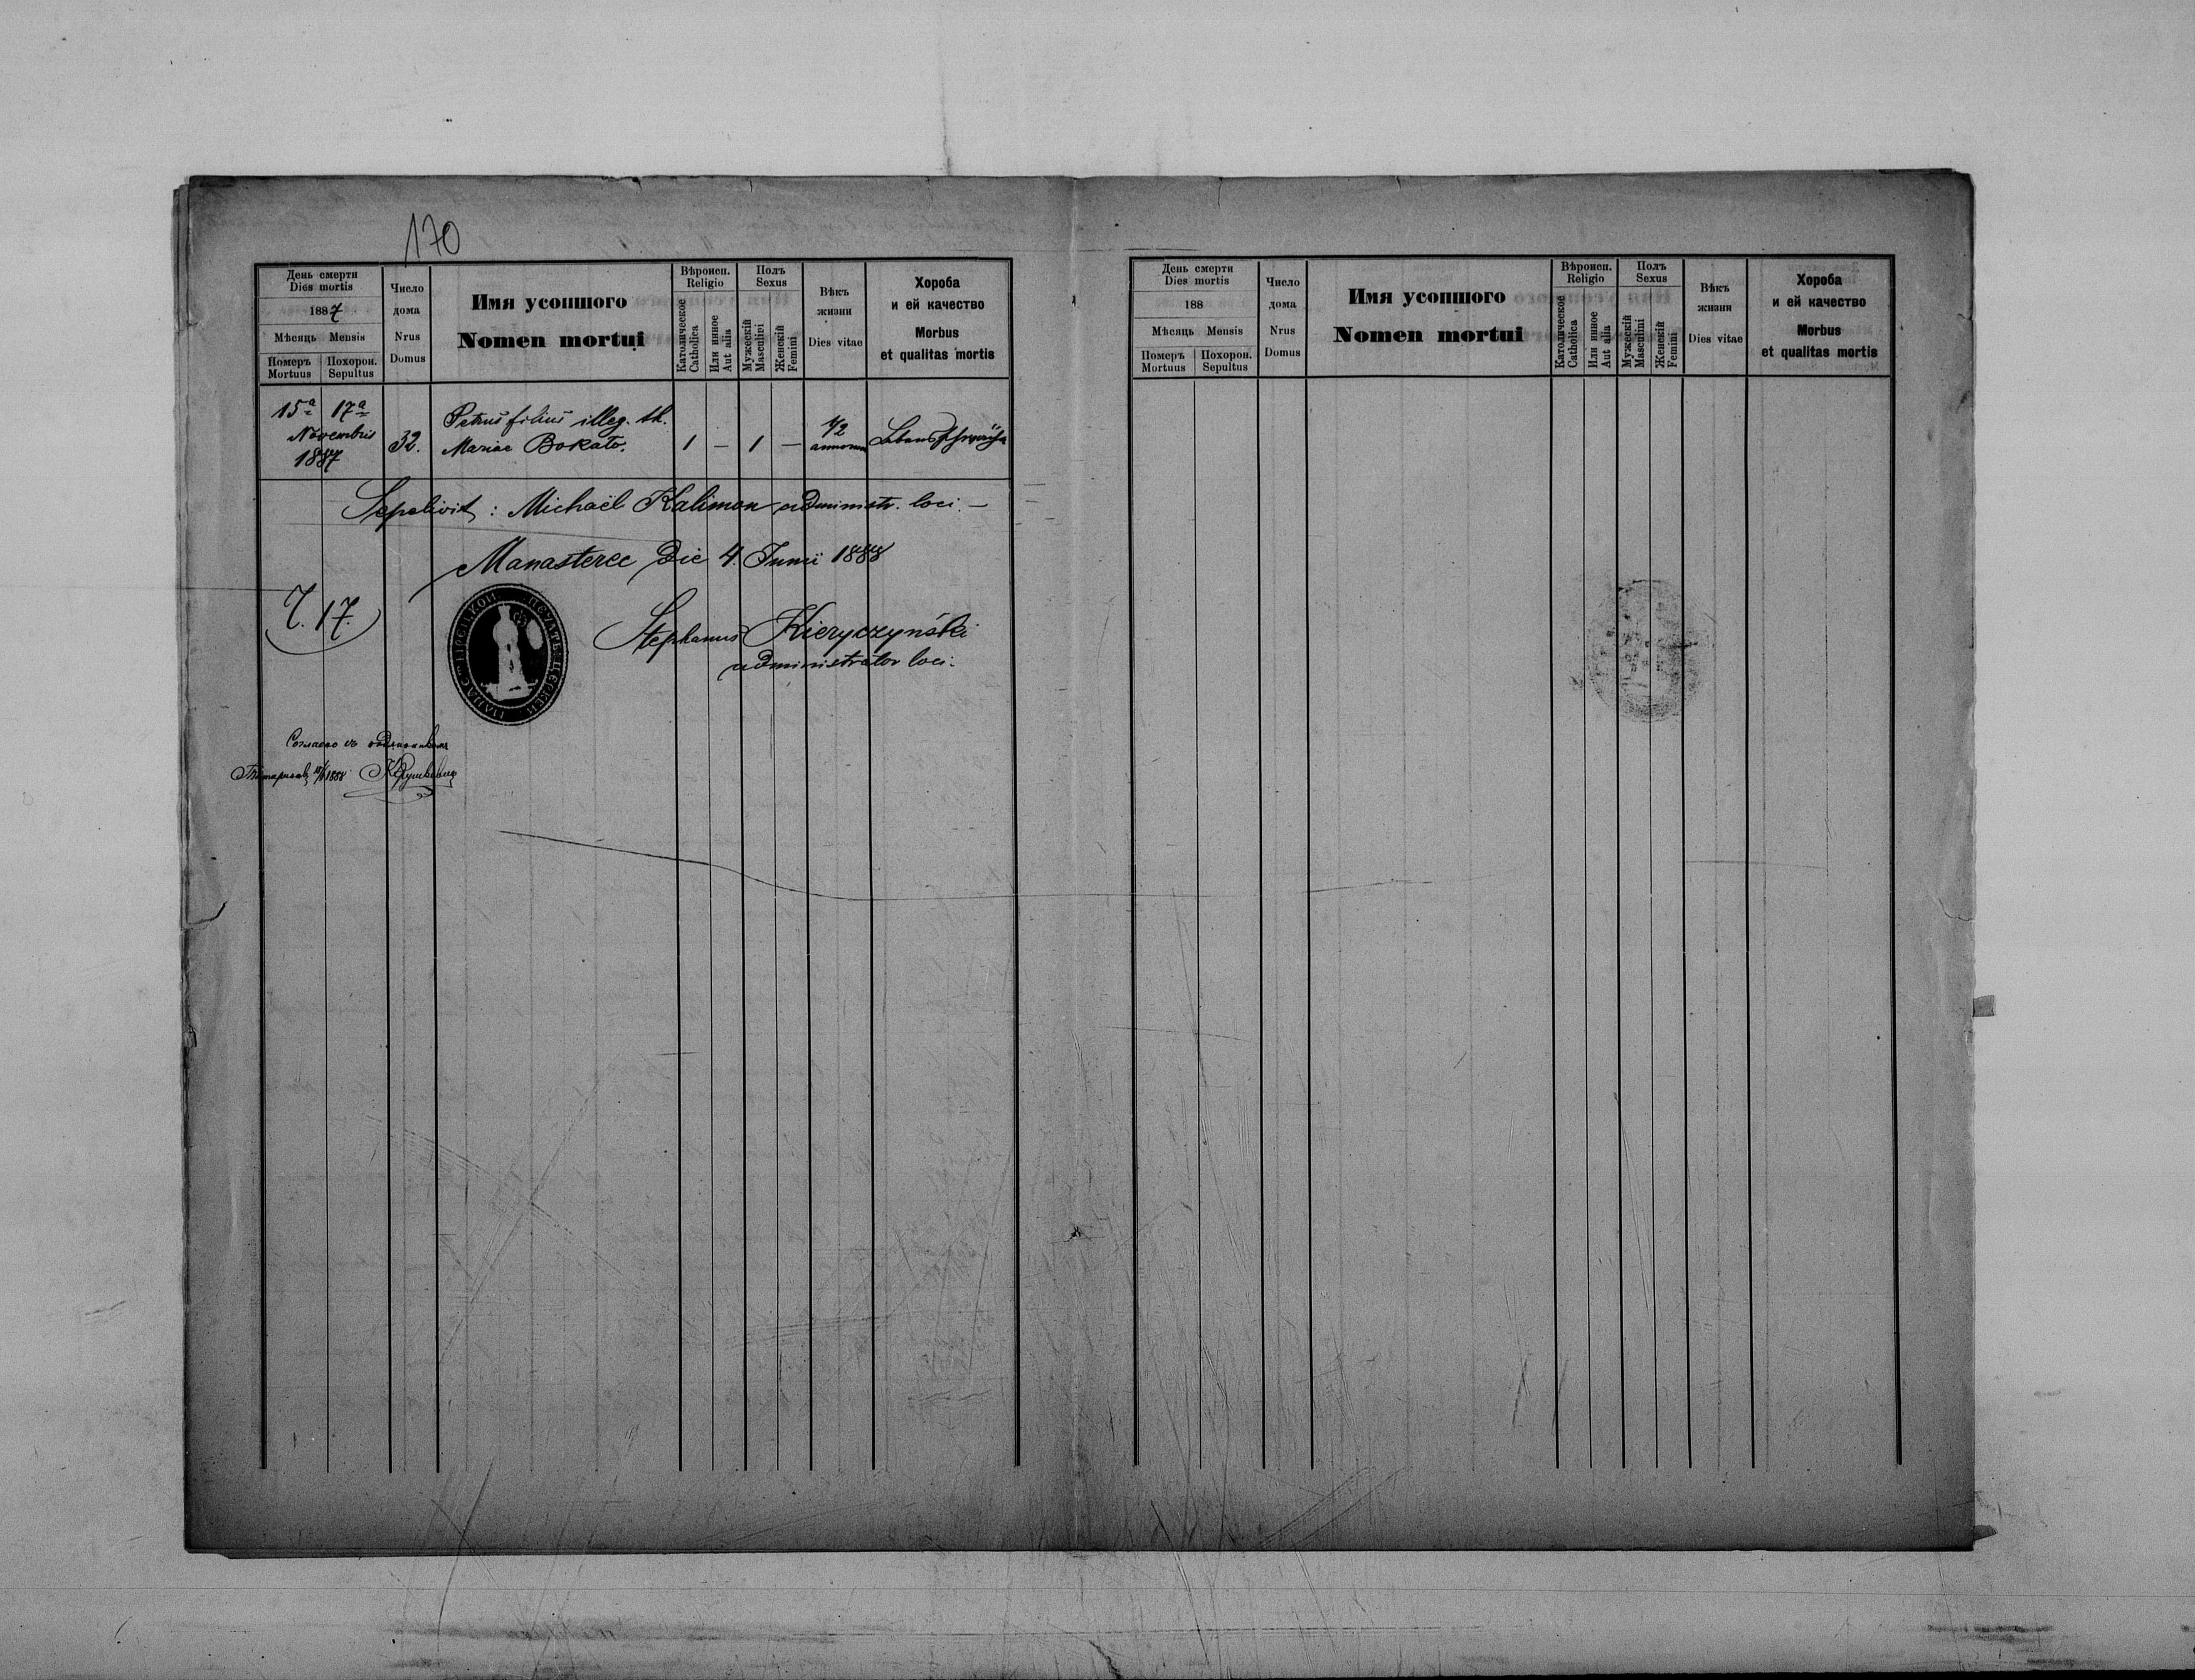 170
День смерти
Dies mortis
1887
Мѣсяць Mensis
Померъ Похорон.
Mortuus Sepultus
Число
дома
Nrus
Domus
Имя усопшого
Nomen mortui
Вѣроисп.
Religio
Католическое
Catholica
Или инное
Aut alia
Полъ
Sexus
Мужескій
Masculini
Женскій
Femini
Вѣкъ
жизни
Dies vitae
Хороба
и ей качество
Morbus
et qualitas mortis
15ª 17ª
Novembris
1887
32.
Petrus filius illeg. th.
Mariae Bokało.
1 — 1 —
1/2
annorum
Lebensschwäche
Sepelivit : Michaël Kalimon administr. loci. —
Manasterec Die 4. Junii 1888
T. 17.
Stephanus Kieryczyński
administrator loci.
1888
День смерти
Dies mortis
188
Мѣсяць Mensis
Померъ Похорон.
Mortuus Sepultus
Число
дома
Nrus
Domus
Имя усопшого
Nomen mortui
Вѣроисп.
Religio
Католическое
Catholica
Или инное
Aut alia
Полъ
Sexus
Мужескій
Masculini
Женскій
Femini
Вѣкъ
жизни
Dies vitae
Хороба
и ей качество
Morbus
et qualitas mortis